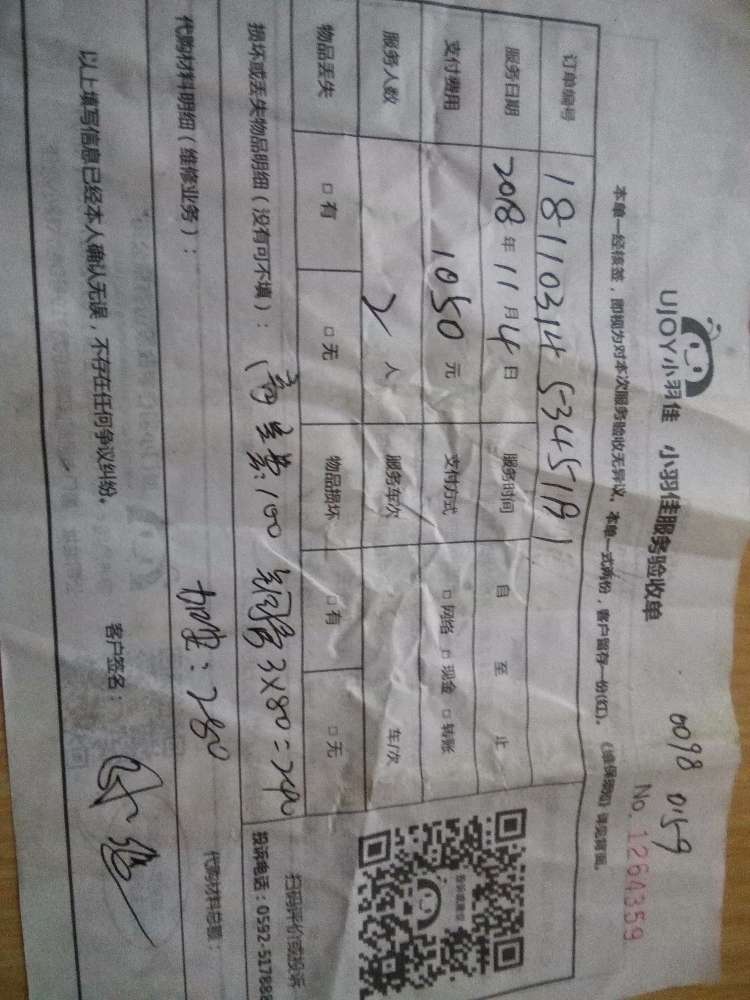 0098 0159
UJOY小羽佳 小羽佳服务验收单
No. 1264359
本单一经核签，即视为对本次服务验收无异议。本单一式两份，客户留存一份(红)。
订单编号 18110314 5345191
服务日期 2018 年 11 月 4 日 服务时间 自 至 止
支付费用 1050 元 支付方式 □ 网络 □ 现金 □ 转账
服务人数 2 人 服务车次 车/次
物品丢失 □ 有 □ 无 物品损坏 □ 有 □ 无
损坏或丢失物品明细（没有可不填）：
100 3×80=240
代购材料明细（维修业务）：
280
代购材料总额：
扫码评价或投诉
投诉电话：0592-517888
以上填写信息已经本人确认无误，不存在任何争议纠纷。 客户签名：